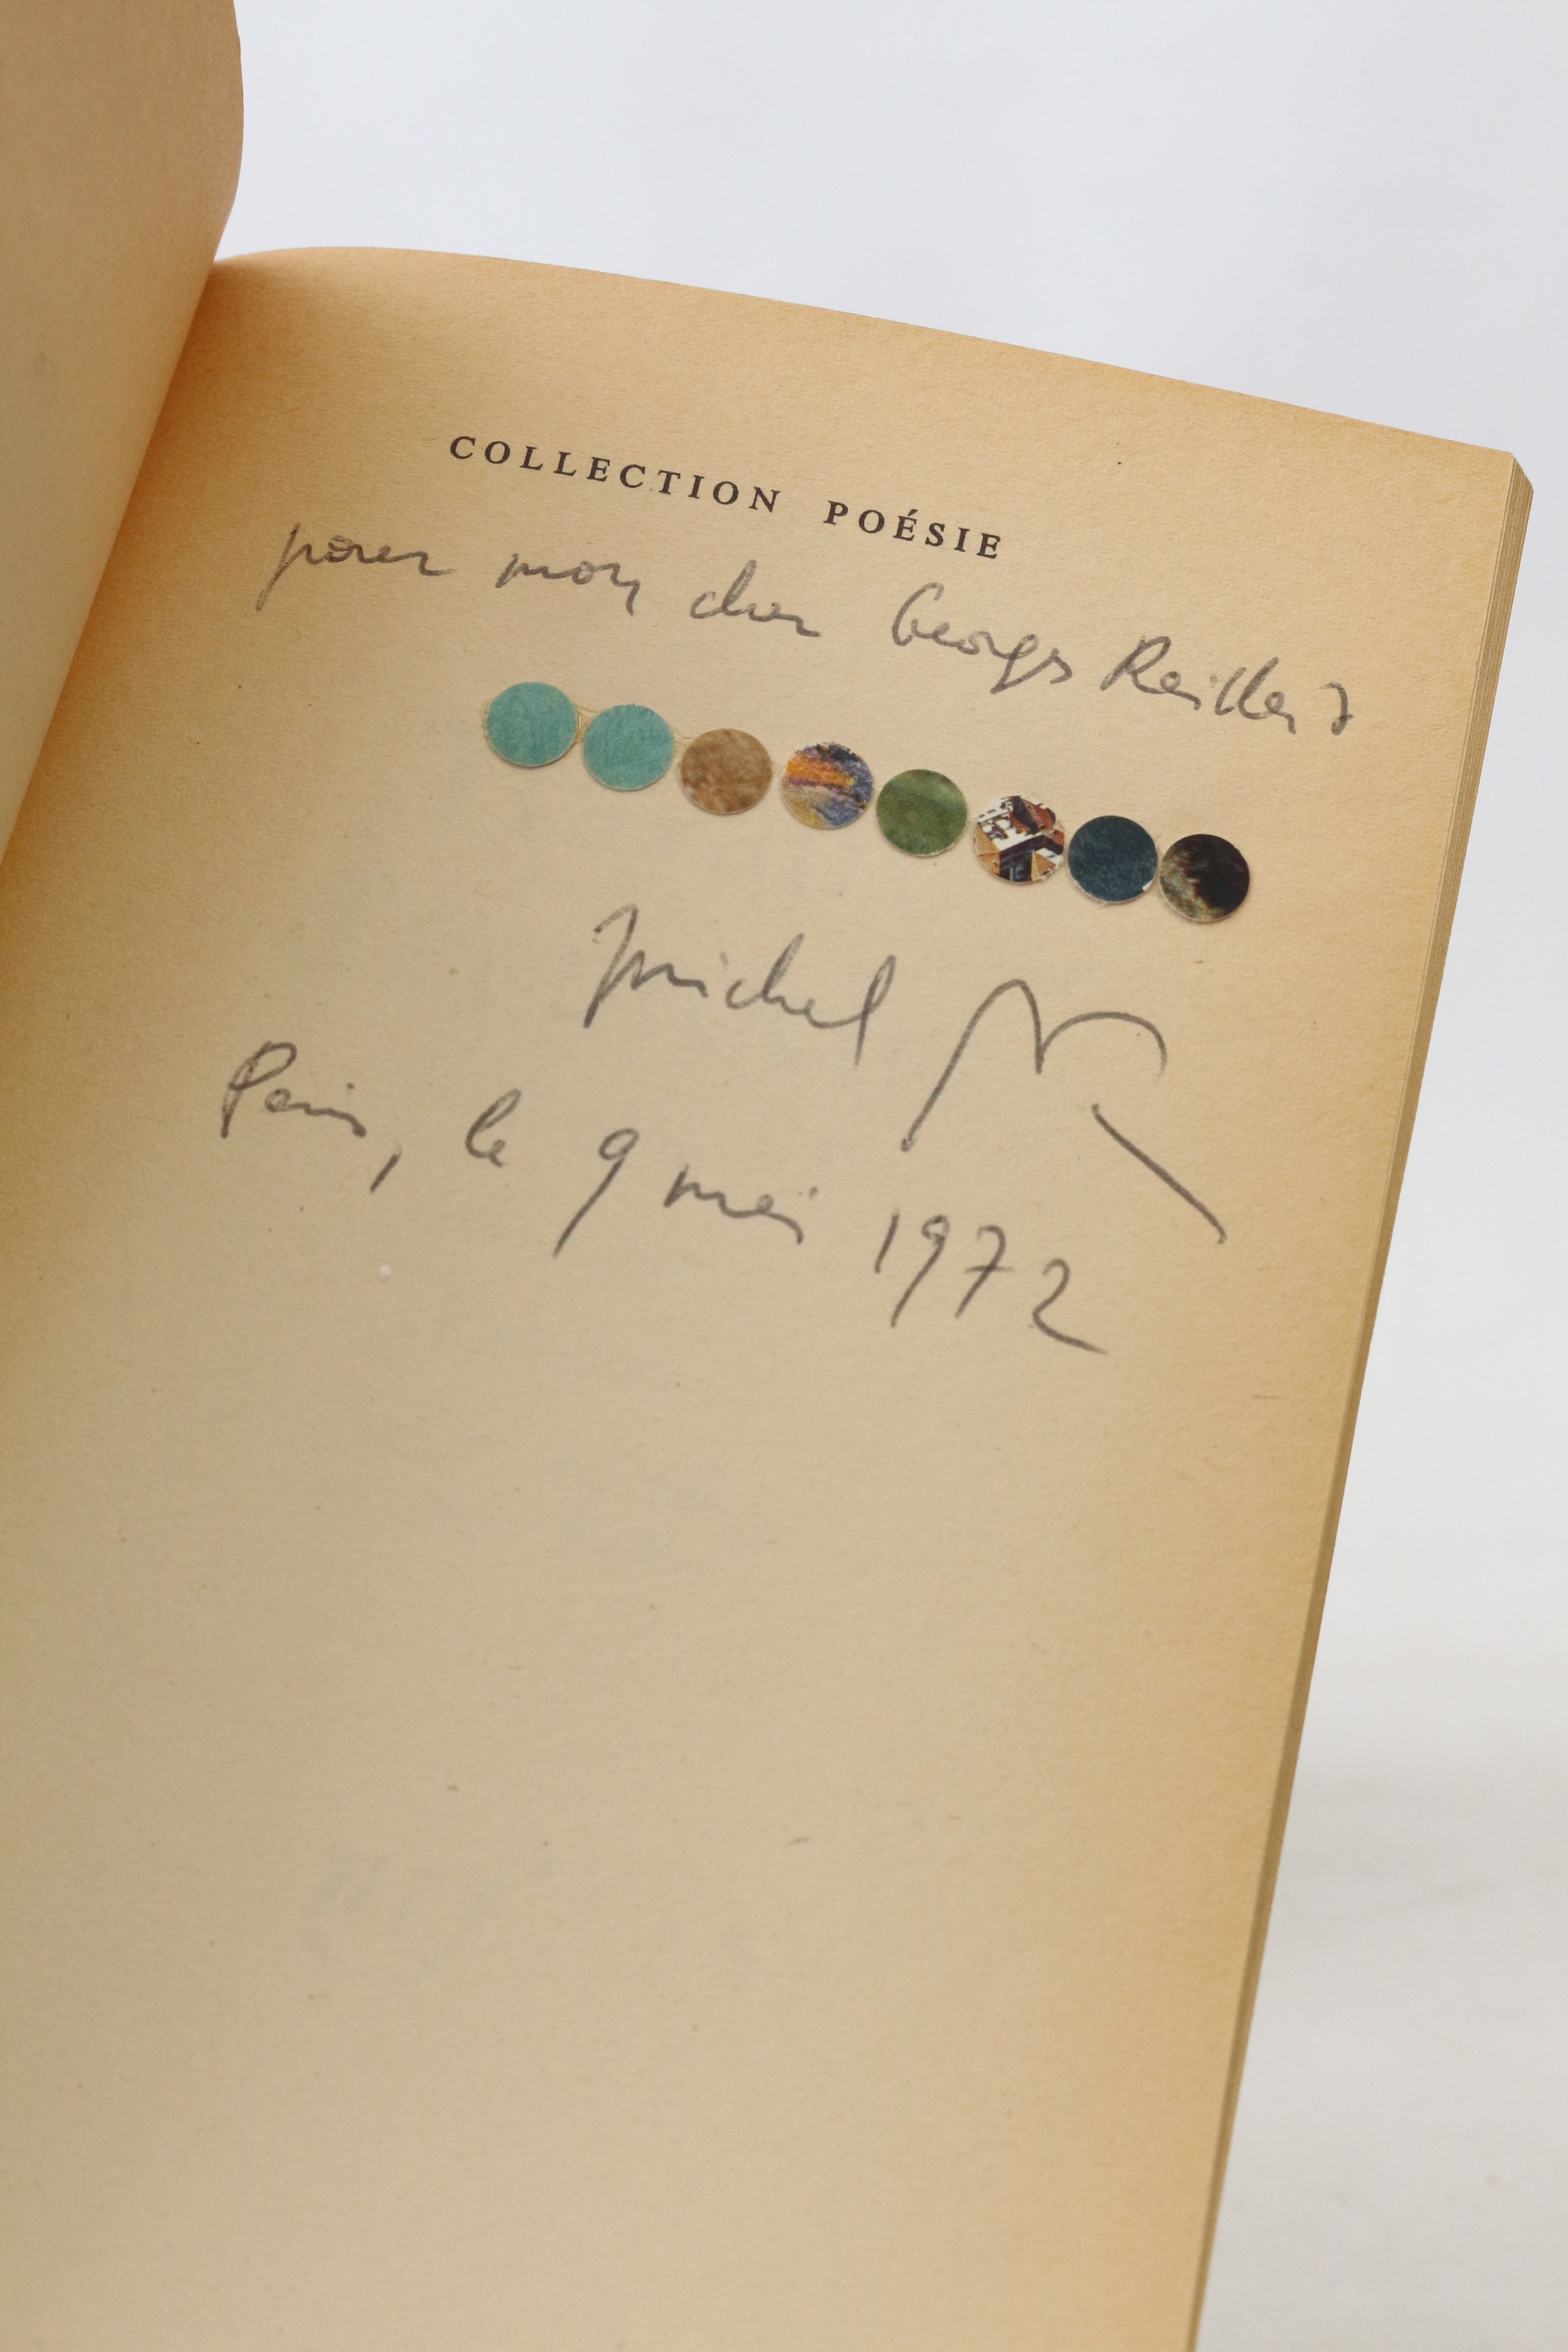 COLLECTION POÉSIE
pour mon cher Georges Raillard
Michel
Paris, le 9 mai 1972